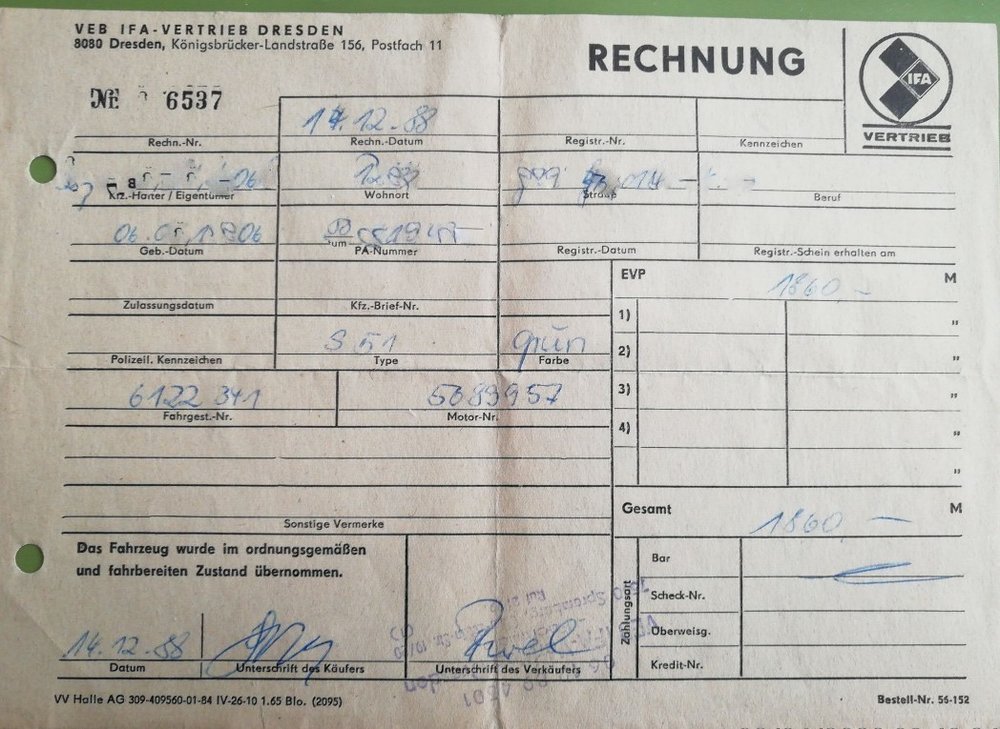 VEB IFA-VERTRIEB DRESDEN
8080 Dresden, Königsbrücker-Landstraße 156, Postfach 11
RECHNUNG
IFA
VERTRIEB
№ 6537
14.12.88
Rechn.-Nr. Rechn.-Datum Registr.-Nr. Kennzeichen
Kfz.-Halter / Eigentümer Wohnort Straße Beruf
Geb.-Datum PA-Nummer Registr.-Datum Registr.-Schein erhalten am
EVP 1860,— M
Zulassungsdatum Kfz.-Brief-Nr.
1) "
S 51 grün
Polizeil. Kennzeichen Type Farbe
2) "
6122 341 5689957
Fahrgest.-Nr. Motor-Nr.
3) "
4) "
"
Sonstige Vermerke
Gesamt 1860,— M
Das Fahrzeug wurde im ordnungsgemäßen
und fahrbereiten Zustand übernommen.
Zahlungsart
Bar
Scheck-Nr.
Überweisg.
Kredit-Nr.
14.12.88
Datum Unterschrift des Käufers Unterschrift des Verkäufers
VV Halle AG 309-409560-01-84 IV-26-10 1.65 Blo. (2095) Bestell-Nr. 56-152